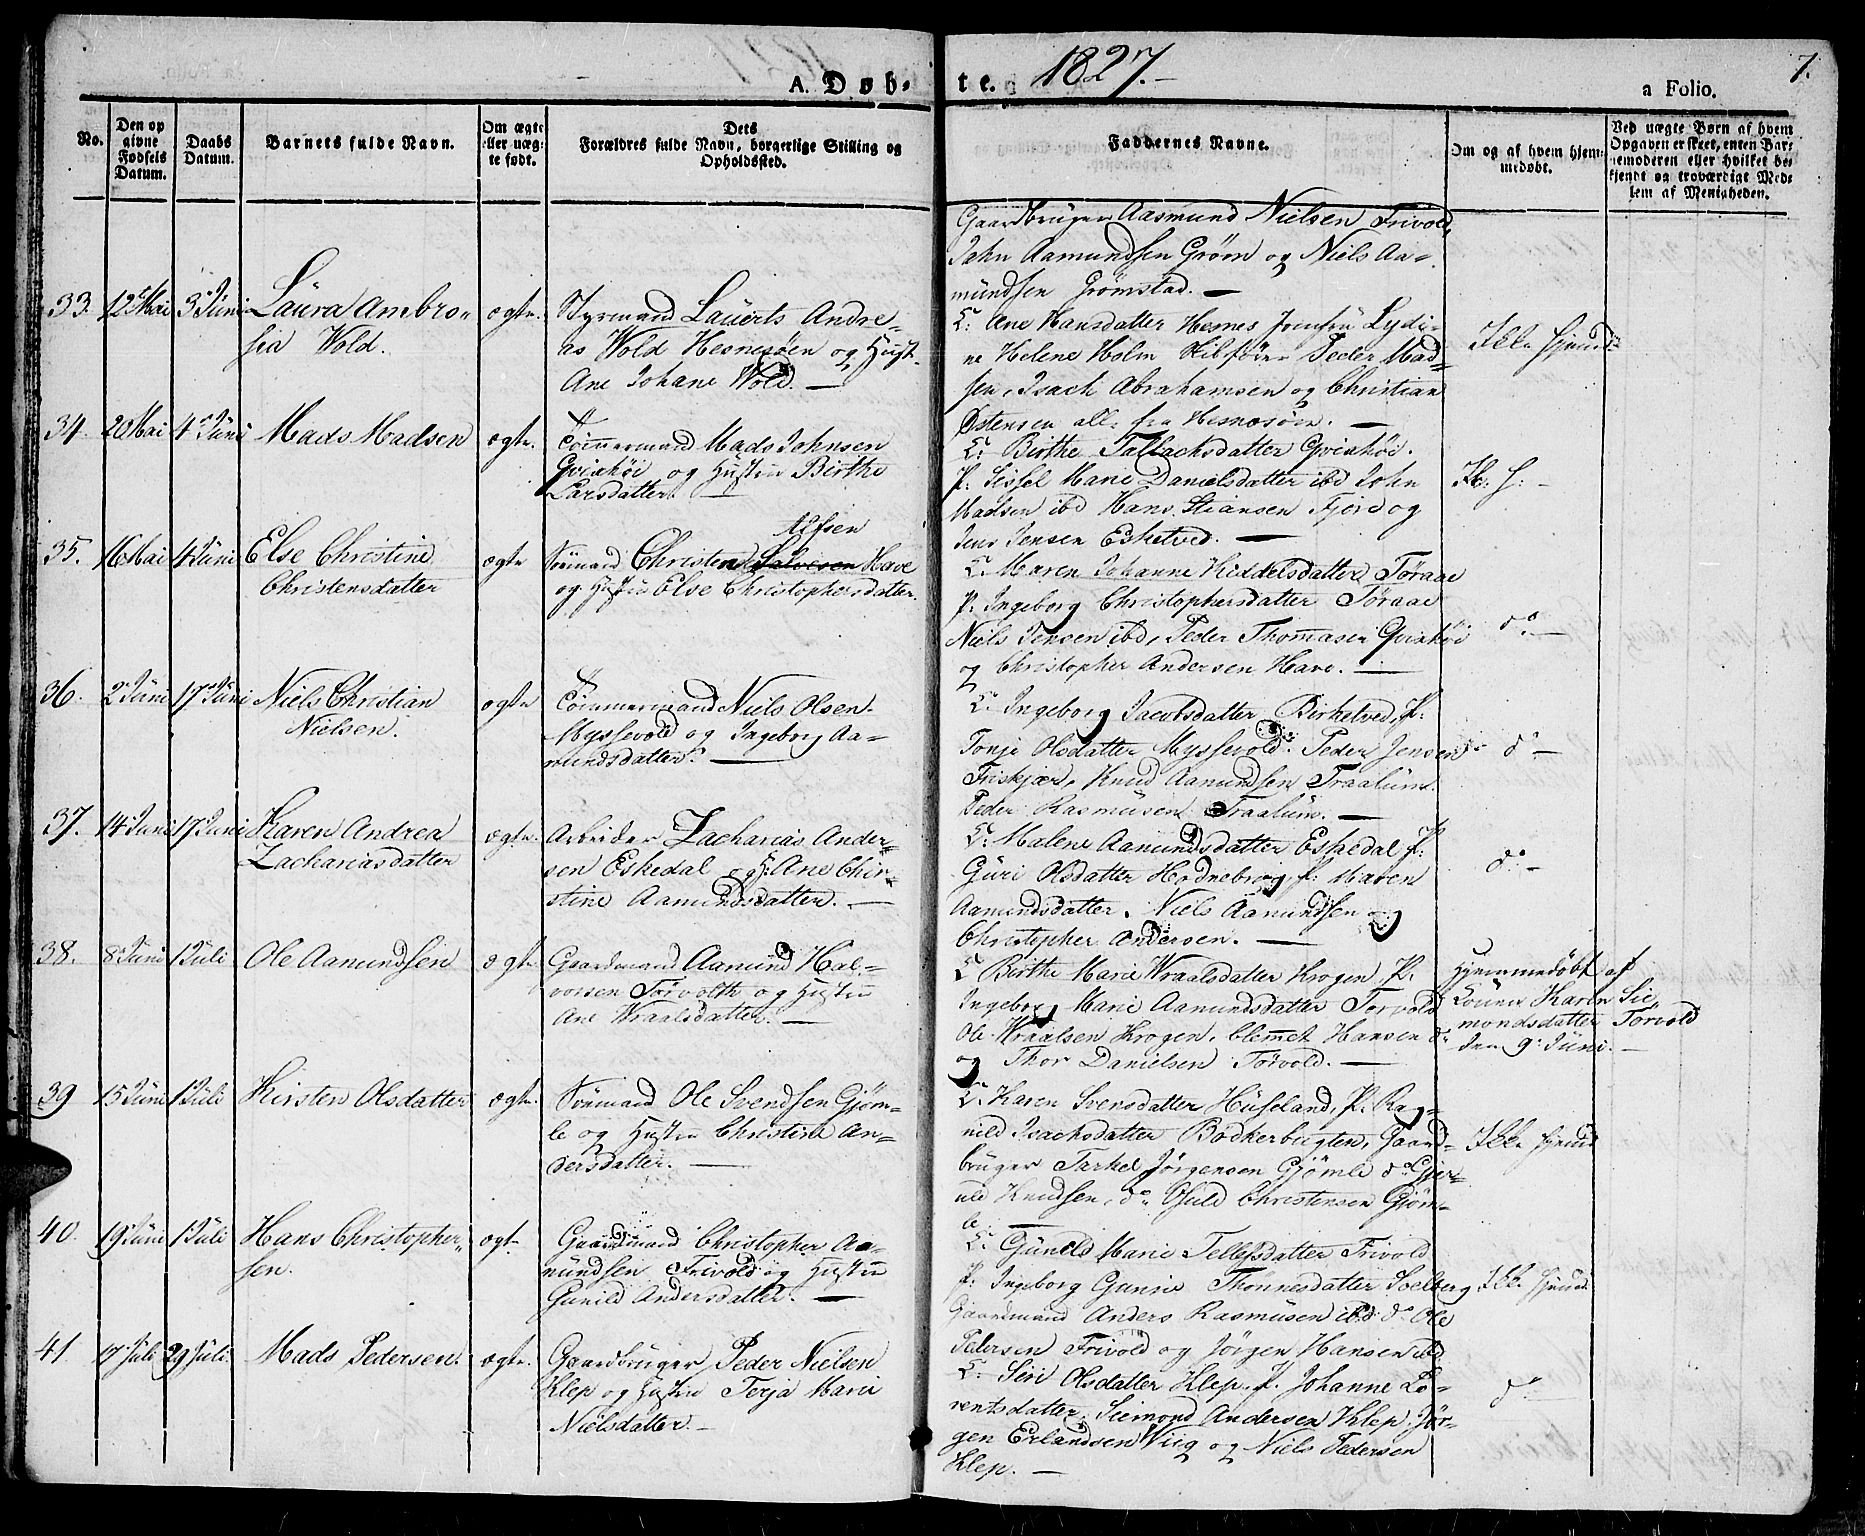 A. Døb-
te. 1827.-
7.
a Folio.
No.
Den op
givne
Fødsels
Datum.
Daabs
Datum.
Barnets fulde Navn.
Om ægte
eller uæg-
te født.
Dets
Forældres fulde Navn, borgerlige Stilling og
Opholdssted.
Faddernes Navne.
Om og af hvem hjem-
medøbt.
Ved uægte Børn af hvem
Opgaven er skeet, enten Bar-
nemoderen eller hvilket be-
kjendt og troværdigt Med-
lem af Menigheden.
Gaardbruger Aasmund Nielsen Frivold,
Jahn Aamundsen Grøm og Niels Aa-
mündsen Grømstad. —
33. 12te Mai 3 Jüni Läura Ambro-
sia Wold.
ægte.
Styrmand Läuerts Andre-
as Wold Hesnesøen og Hustr.
Ane Johane Wold. —
C: Ane Hansdatter Hesnes Jomfrü Lydi-
ne Helene Holm Skibfører Peder Mad-
sen, Isach Abrahamsen og Christian
Østensen alle fra Hesnesøen. —
Ikke hjemd:
34. 20 Mai 4 Jüni Mads Madsen
ægte.
Tömmermand Mads Jahnsen
Qvixhöi og Hustrü Birthe
Larsdatter. —
C: Birthe Tallachsdatter Qvixhöi.
P: Sissel Marie Danielsdatter ibd John
Madsen ibd Hans Stiansen Fjere og
Jens Jensen Esketved. —
Ik: H: -
35. 16 Mai 4 Jüni Else Christine
Christensdatter
ægte
Alfsen
Sömand Christen Salvesen Have
og Hustrü Else Christophersdatter.
C: Maren Johanne Kiddelsdatter Töraae
P: Ingeborg Christophersdatter Töraae
Niels Jensen ibd, Peder Thommasen Qvixhöi
og Christopher Andersen Have. —
do. —
36. 2 Jüni 17 Jüni Niels Christian
Nielsen.
ægte
Tömmermand Niels Olsen
Myssevold og Ingeborg Aa-
mundsdatter. —
C. Ingeborg Jacobsdatter Birketved, P:
Tonje Olsdatter Myssevold. Peder Jensen
Friskjær, Knud Aamundsen Traalüm.
Peder Rasmüsen Traalüm. —
do —
37. 14 Jüni 17 Jüni Karen Andrea
Zachariasdatter
ægte.
Arbeider Zacharias Ander-
sen Eskedal og H: Ane Chir-
stine Aamundsdatter. —
C: Malene Aamundsdatter Eskedal P:
Güri Olsdatter Hodnebrog, P: Maren
Aamundsdatter. Niels Aamundsen og
Christopher Andersen. —
do. -
38. 8 Jüni 1 Jüli Ole Aamundsen
ægte
Gaardmand Aamund Hal-
vorsen Torvolth og Hustrü
Ane Wraalsdatter. —
C Birthe Marie Wraalsdatter Krogen, P:
Ingeborg Marie Aamundsdatter Torvold
Ole Wraalsen Krogen, Clemmet Hansen do
og Thor Danielsen Torvold. —
Hjemmedöbt af
Konen Karen Sie-
mondsdatter Torvold
den 9 Jüni. —
39 15 Jüni 1 Jüli Kirsten Olsdatter
ægte.
Sömand Ole Svendsen Gjöm-
le og Hustrü Christine An-
dersdatter. —
C: Karen Svensdatter Hüseland, P: Rag-
nild Isachsdatter Bødkerbugten, Gaard-
brüger Tarkel Jørgensen Gjömle do Gjer-
uld Knudsen, do Osuld Christensen Gjöm-
le. —
Ikke hjemd
40. 19 Jüni 1 Jüli Hans Christopher-
sen.
ægte
Gaardmand Christopher Aa-
mündsen Frivold og Hustrü
Günild Andersdatter. —
C: Güneld Marie Tellefsdatter Frivold
P: Ingeborg Gunnie Thommesdatter Soelberg
Gaardmand Anders Rasmüsen ibd do Ole
Pedersen Frivold og Jörgen Hansen ibd
Ikke hjemd.
41. 17 Jüli 29 Jüli. Mads Pedersen.
ægte.
Gaardbrüger Peder Nielsen
Klep og Hustrü Terja Marie
Nielsdatter. —
C: Siri Olsdatter Klep. P. Johanne Lo-
rentsdatter, Siemond Andersen Klep. Jør-
gen Erlandsen Viig og Niels Pedersen
Klep. —
do